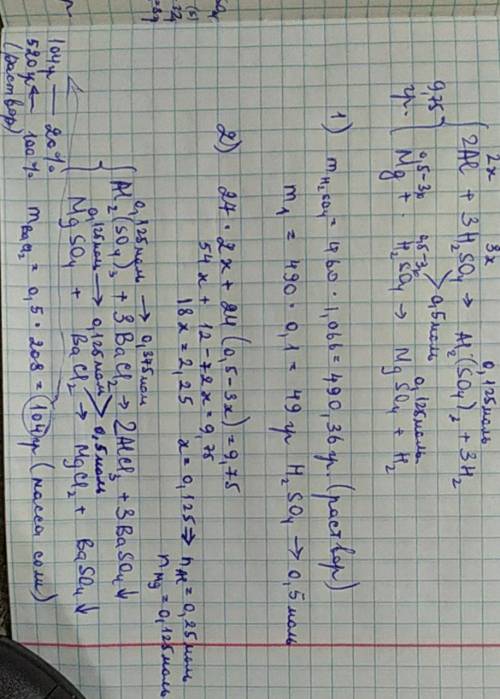 2x 3x 0,125 моль
9,75 гр. { 2Al + 3H₂SO₄ → Al₂(SO₄)₃ + 3H₂
0,5-3x 0,5-3x > 0,5 моль 0,125 моль
Mg + H₂SO₄ → MgSO₄ + H₂
1) m H₂SO₄ = 460 · 1,066 = 490,36 гр. (раствор)
m₁ = 490 · 0,1 = 49 гр H₂SO₄ → 0,5 моль
2) 27 · 2x + 24 (0,5-3x) = 9,75
54x + 12 - 72x = 9,75
18x = 2,25 x = 0,125 ⇒ n Al = 0,25 моль
n Mg = 0,125 моль
0,125 моль → 0,375 моль
{ Al₂(SO₄)₃ + 3BaCl₂ → 2AlCl₃ + 3BaSO₄↓
0,125 моль → 0,125 моль > 0,5 моль
MgSO₄ + BaCl₂ → MgCl₂ + BaSO₄↓
m BaCl₂ = 0,5 · 208 = 104 гр (масса соли)
104 г — 20%
520 г ← 100%
(раствор)